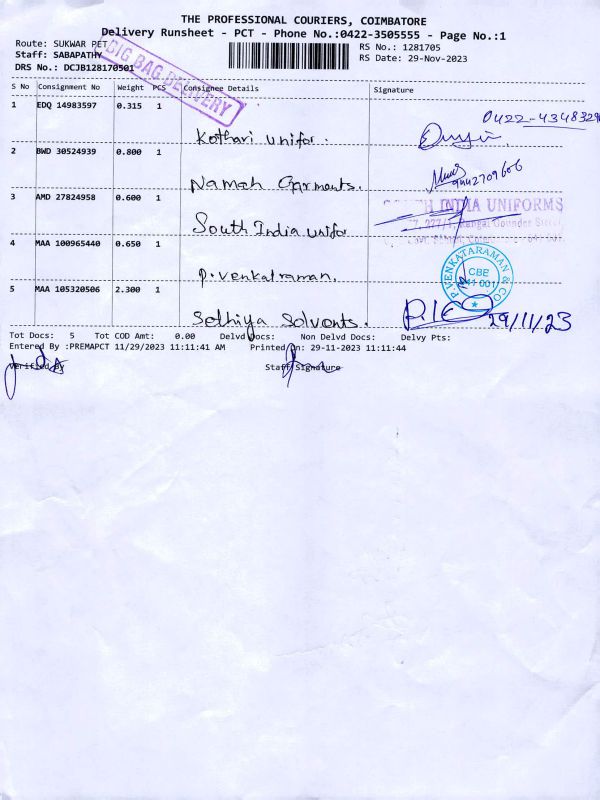 THE PROFESSIONAL COURIERS, COIMBATORE
Delivery Runsheet - PCT - Phone No.:0422-3505555 - Page No.:1
Route: SUKWAR PET
Staff: SABAPATHY
DRS No.: DCJB128170501
RS No.: 1281705
RS Date: 29-Nov-2023
BIG BAG DELIVERY
S No Consignment No Weight PCS Consignee Details Signature
1 EDQ 14983597 0.315 1
Kothari Unifor. 0422-4348329
2 BWD 30524939 0.800 1
Namah Garments. 9442709606
3 AMD 27824958 0.600 1
South India Unifor
SOUTH INDIA UNIFORMS
4 MAA 100965440 0.650 1
P. Venkatraman.
P. VENKATARAMAN & CO
CBE
641 001
5 MAA 105320506 2.300 1
Sethiya Solvents. 29/11/23
Tot Docs: 5 Tot COD Amt: 0.00 Delvd Docs: Non Delvd Docs: Delvy Pts:
Entered By :PREMAPCT 11/29/2023 11:11:41 AM Printed on: 29-11-2023 11:11:44
Verified By Staff Signature